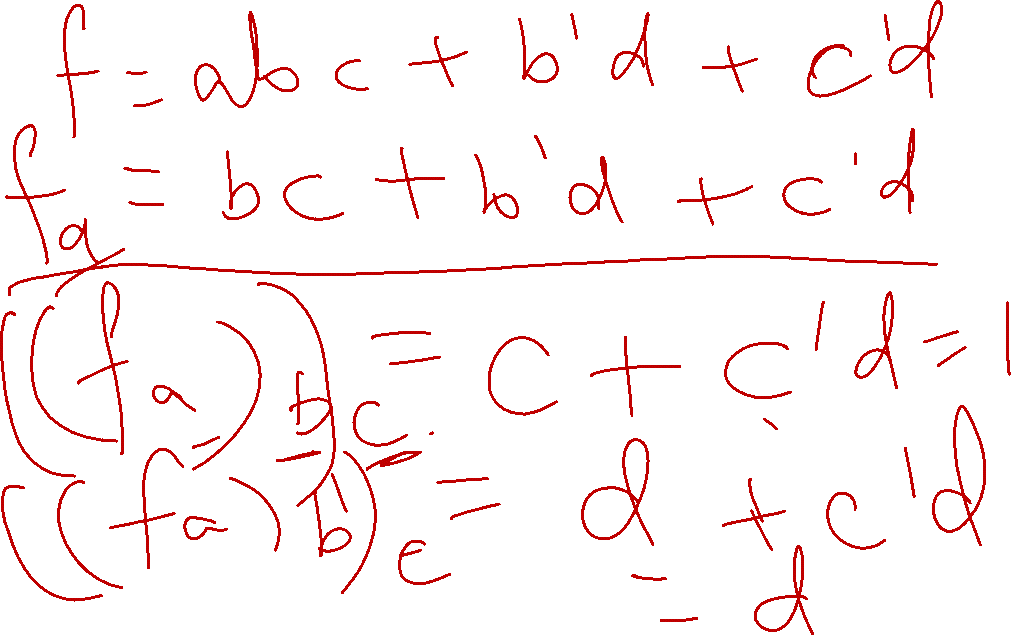 f = abc + b'd + c'd
f_a = bc + b'd + c'd
((f_a)_b)_c = c + c'd = 1
((f_a)_b')_c = d + c'd
= d